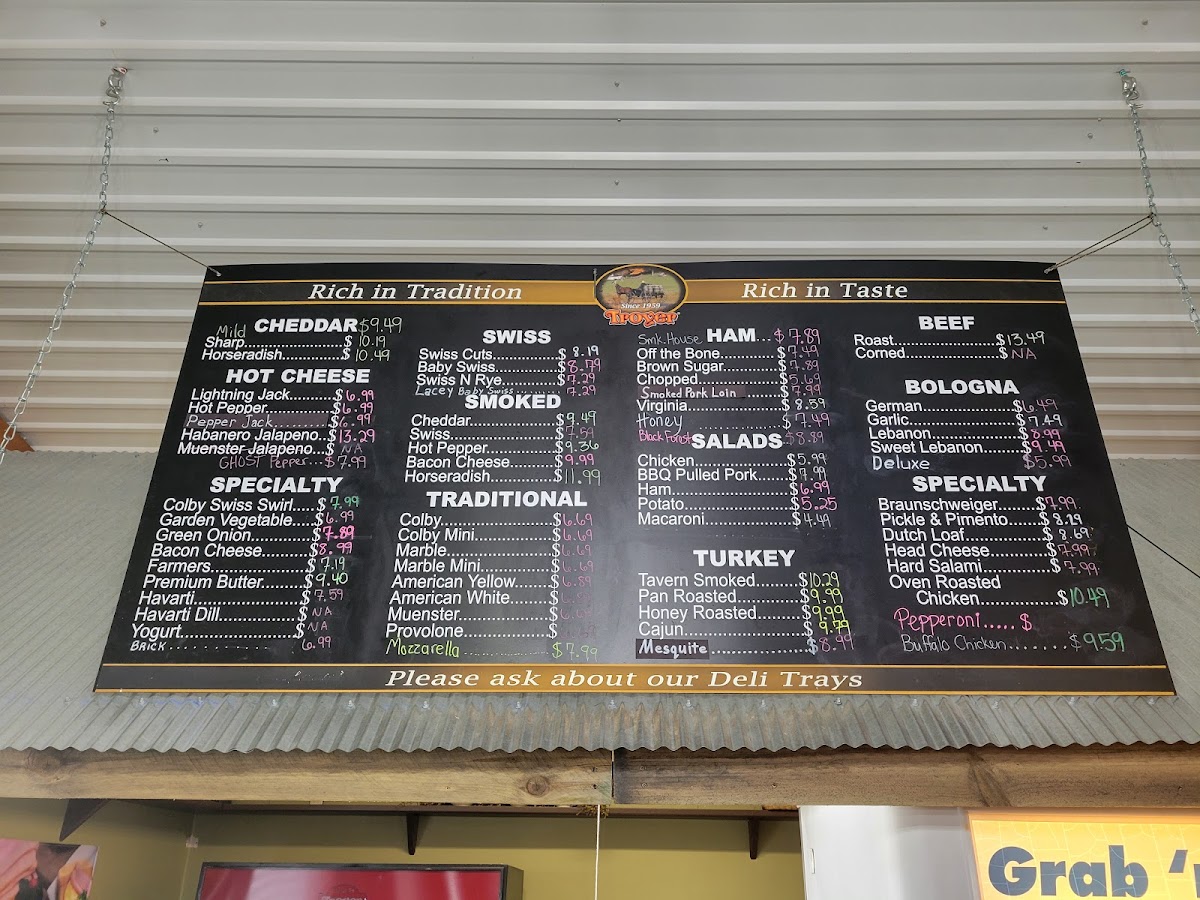 Rich in Tradition
Since 1959
Troyer
Rich in Taste
CHEDDAR
Mild $9.49
Sharp.....................$ 10.19
Horseradish...............$ 10.49
HOT CHEESE
Lightning Jack..........$ 6.99
Hot Pepper...............$ 6.99
Pepper Jack..........$6.99
Habanero Jalapeno..$13.29
Muenster Jalapeno..$ NA
GHOST Pepper...$7.99
SPECIALTY
Colby Swiss Swirl....$ 7.99
Garden Vegetable....$ 6.99
Green Onion............$7.89
Bacon Cheese..........$8.99
Farmers....................$7.19
Premium Butter.........$9.40
Havarti......................$7.59
Havarti Dill................$ NA
Yogurt.......................$ NA
BRICK.................... 6.99
SWISS
Swiss Cuts..............$ 8.19
Baby Swiss.............$8.79
Swiss N Rye...........$7.29
Lacey Baby Swiss.......7.29
SMOKED
Cheddar..................$9.49
Swiss......................$7.59
Hot Pepper.............$9.36
Bacon Cheese........$9.99
Horseradish............$11.99
TRADITIONAL
Colby......................$6.69
Colby Mini..............$6.69
Marble....................$6.69
Marble Mini............$6.69
American Yellow.....$6.89
American White......$
Muenster................$
Provolone...............$
Mozzarella..............$7.99
HAM
Smk.House ...$ 7.89
Off the Bone............$7.49
Brown Sugar............$7.89
Chopped..................$5.69
Smoked Pork Loin 7.99
Virginia.....................$8.59
Honey..........$7.49
Black Forest $8.89
SALADS
Chicken...................$5.99
BBQ Pulled Pork......$7.99
Ham........................$6.99
Potato.....................$5.25
Macaroni.................$4.49
TURKEY
Tavern Smoked........$10.29
Pan Roasted............$9.99
Honey Roasted........$9.99
Cajun......................$9.79
Mesquite................$8.99
BEEF
Roast.....................$13.49
Corned...................$NA
BOLOGNA
German..................$6.49
Garlic.....................$7.49
Lebanon.................$8.99
Sweet Lebanon.......$9.49
Deluxe $5.99
SPECIALTY
Braunschweiger.......$7.99
Pickle & Pimento......$ 8.29
Dutch Loaf..............$ 8.69
Head Cheese...........$7.99
Hard Salami.............$ 7.99
Oven Roasted
Chicken..................$10.49
Pepperoni......$
Buffalo Chicken.......$9.59
Please ask about our Deli Trays
Grab